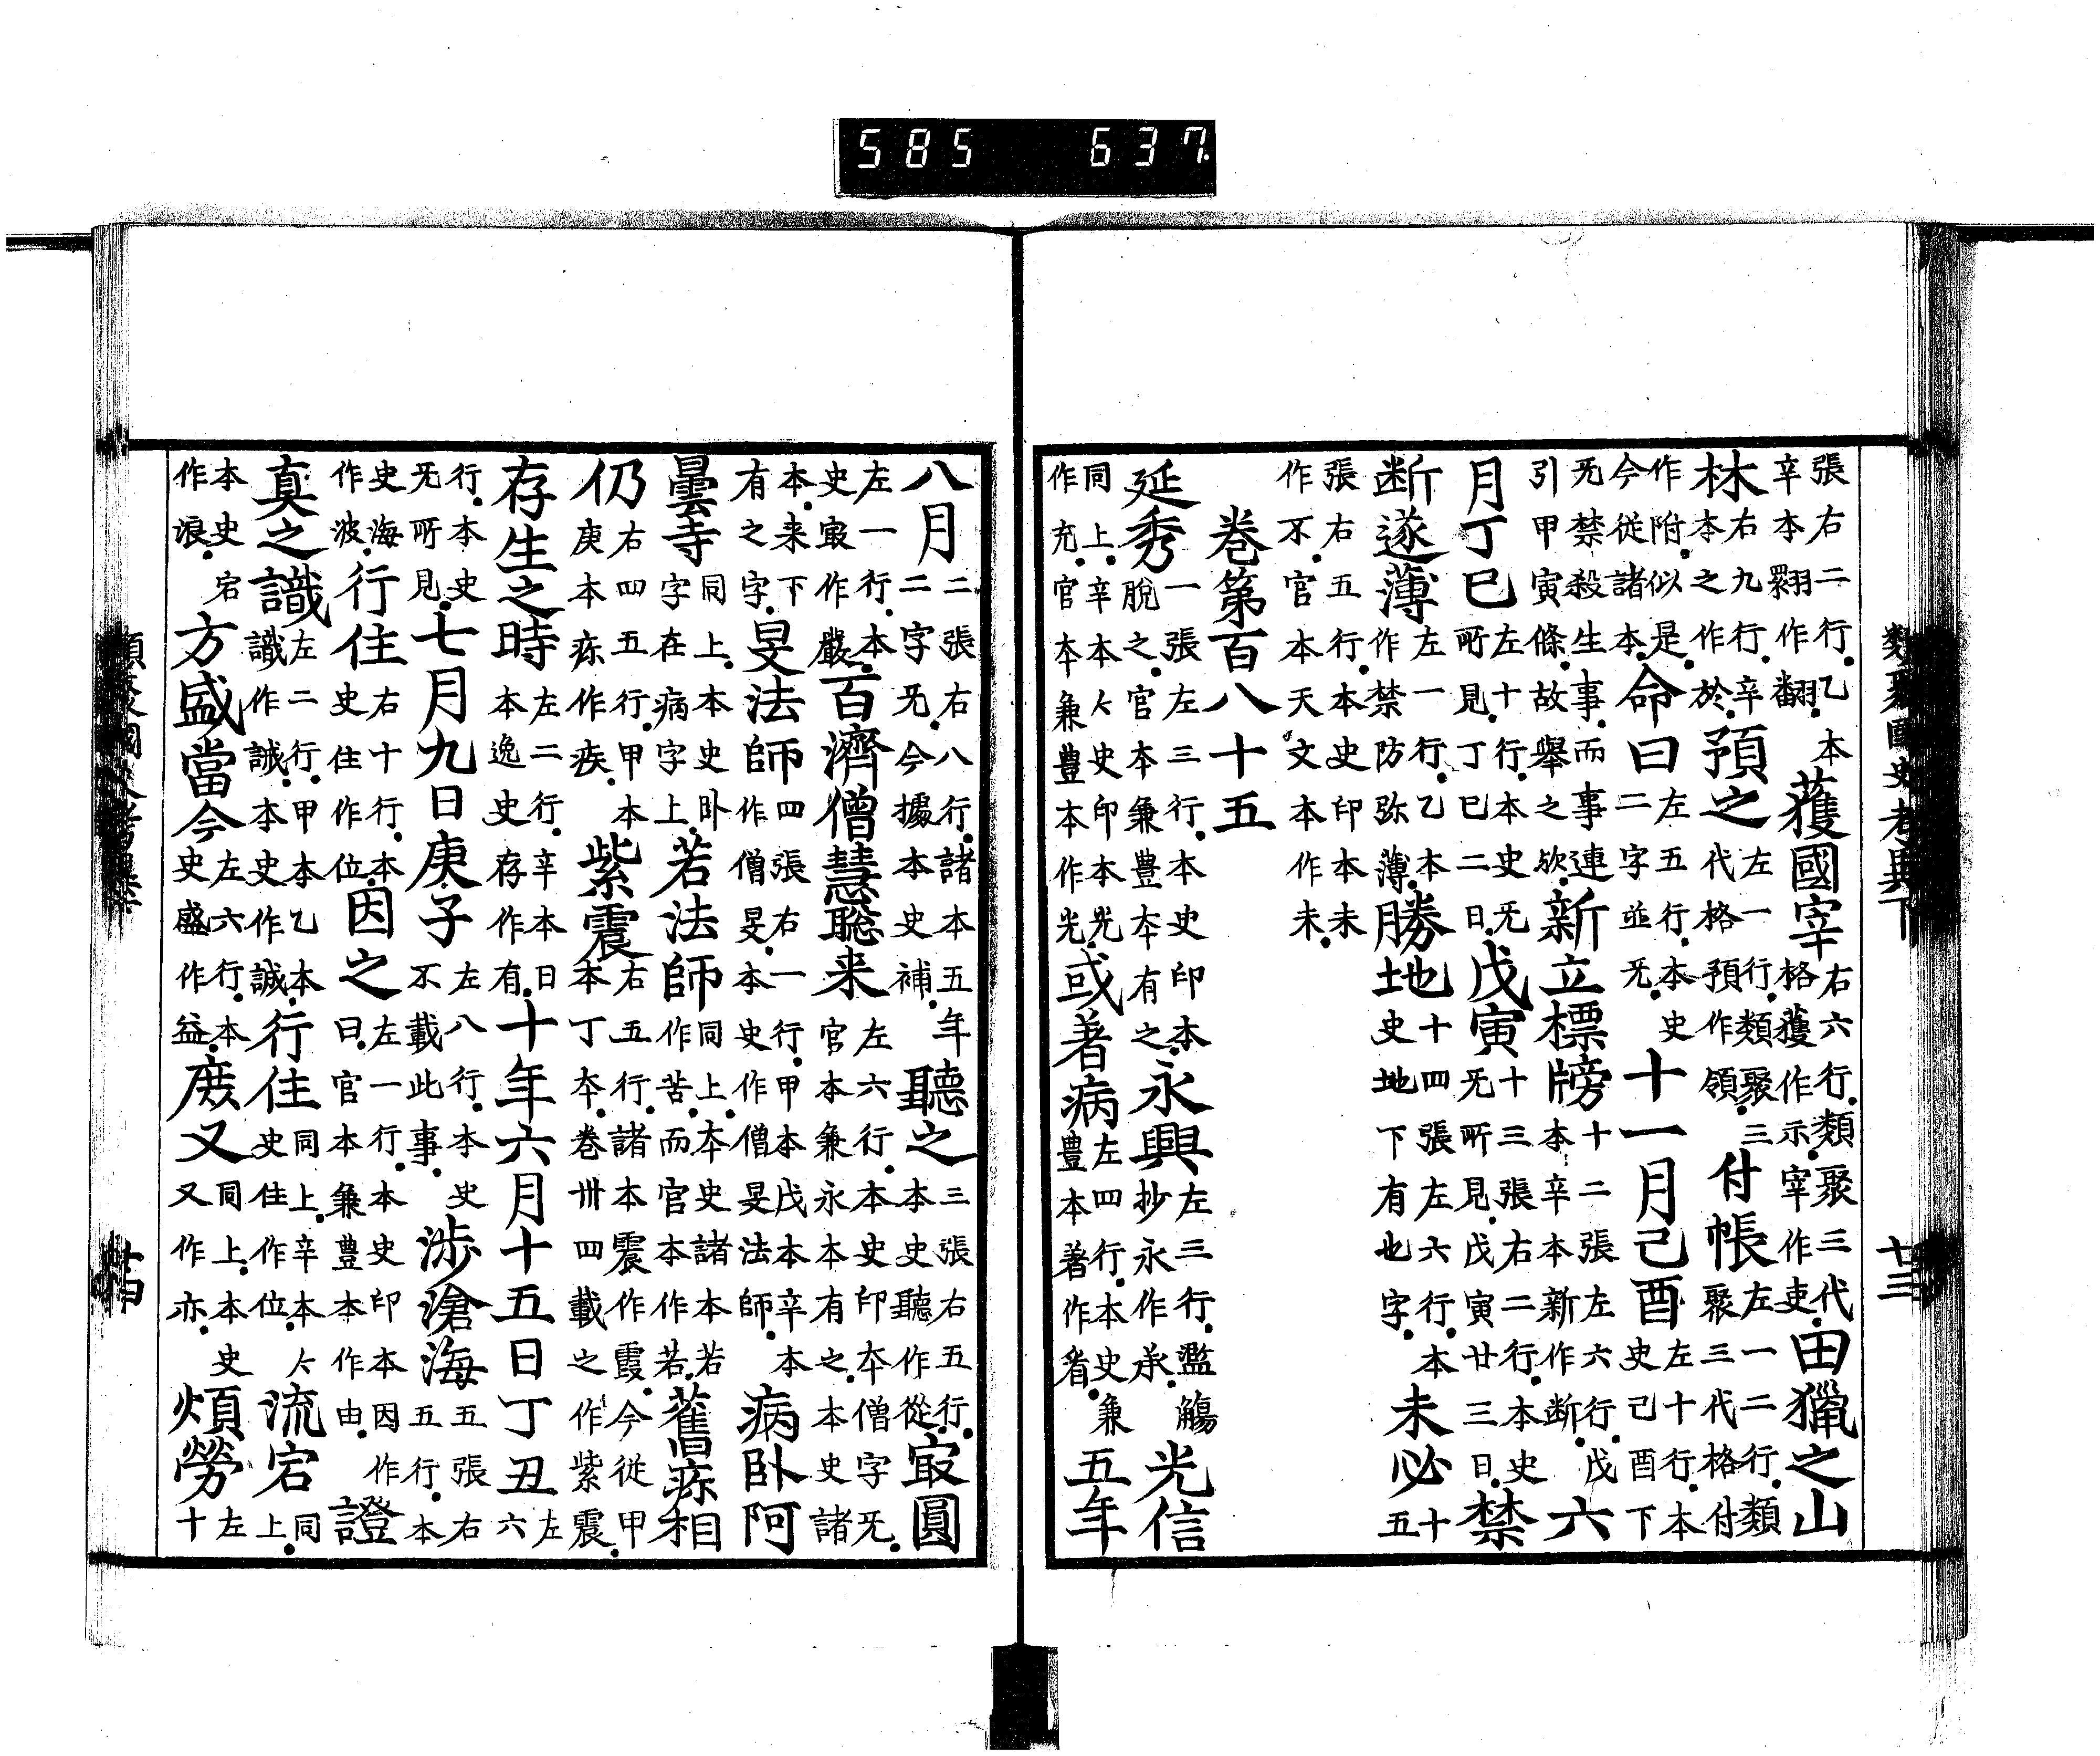 類聚國史考異下 十三
張右二行.乙本辛本翱作翻.獲國宰右六行.類聚三代格獲作示.宰作吏.田獵之山
林右九行.辛本之作於.預之左一行.類聚.三代格預作領.付帳左一二行.類聚三代格付
作附.似是.今從諸本.命曰左五行.本史二字並旡.十一月己酉左十行.本史己酉下
旡禁殺生事.而事連引甲寅條.故舉之欤.新立標牓十二張左六行.戊本辛本新作断.六
月丁巳左十行.本史旡所見.丁巳二日.戊寅十三張右二行.本史旡所見.戊寅廿三日.禁
断遂薄左一行.乙本作禁防弥薄.勝地十四張左六行.本史地下有也字.未必十五
張右五行.本史印本未作不.官本天文本作未.
巻第百八十五
延秀一張左三行.本史印本.脫之.官本兼豊本有之.永興左三行.濫觴抄永作承.光信
同上.辛本𠆢史印本光作充.官本兼豊本作光.或著病左四行.本史兼豊本著作着.五年
八月二張右八行.諸本五年二字旡.今據本史補.聽之三張右五行.本史聽作從.㝡圓
左一行.本史㝡作嚴.百濟僧慧聡来左六行.本史印本僧字旡.官本兼永本有之.本史諸
本.来下有之字.旻法師四張右一行.甲本戊本辛本作僧旻.本史作僧旻法師.病卧阿
曇寺同上.本史卧字在病字上.若法師同上.本史諸本若作苦.而官本作若.舊痾相
仍右四五行.甲本庚本痾作疾.紫震右五行.諸本震作霞.今從甲本丁本.巻卌四載之作紫震.
存生之時左二行.辛本日本逸史存作有.十年六月十五日丁丑左六
行.本史旡所見.七月九日庚子左八行.本史不載此事.涉滄海五張右五行.本
史海作波.行住右十行.本史住作位.因之左一行.本史印本因作曰.官本兼豊本作由.證
真之識左二行.甲本乙本識作誠.本史作誠.行住同上.辛本𠆢史住作位.流宕同上.
本史宕作浪.方盛當今左六行.本史盛作益.庻又同上.本史又作亦.煩勞左十
585 637.